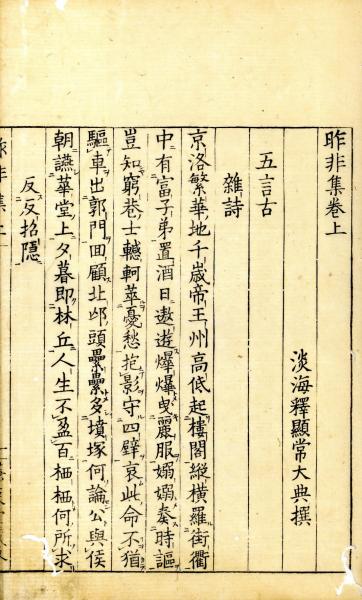 昨非集卷上
淡海釋顯常大典撰
五言古
雜詩
京洛繁華地千歲帝王州高低起樓閣縱橫羅街衢
中有富子弟置酒日遨遊爗爗曳麗服嫋嫋奏時謳
豈知窮巷士轗軻萃憂愁抱影守四壁哀此命不猶
驅車出郭門回顧北邙頭纍纍多墳塚何論公與侯
朝讌華堂上夕暮即林丘人生不盈百栖栖何所求
反反招隱